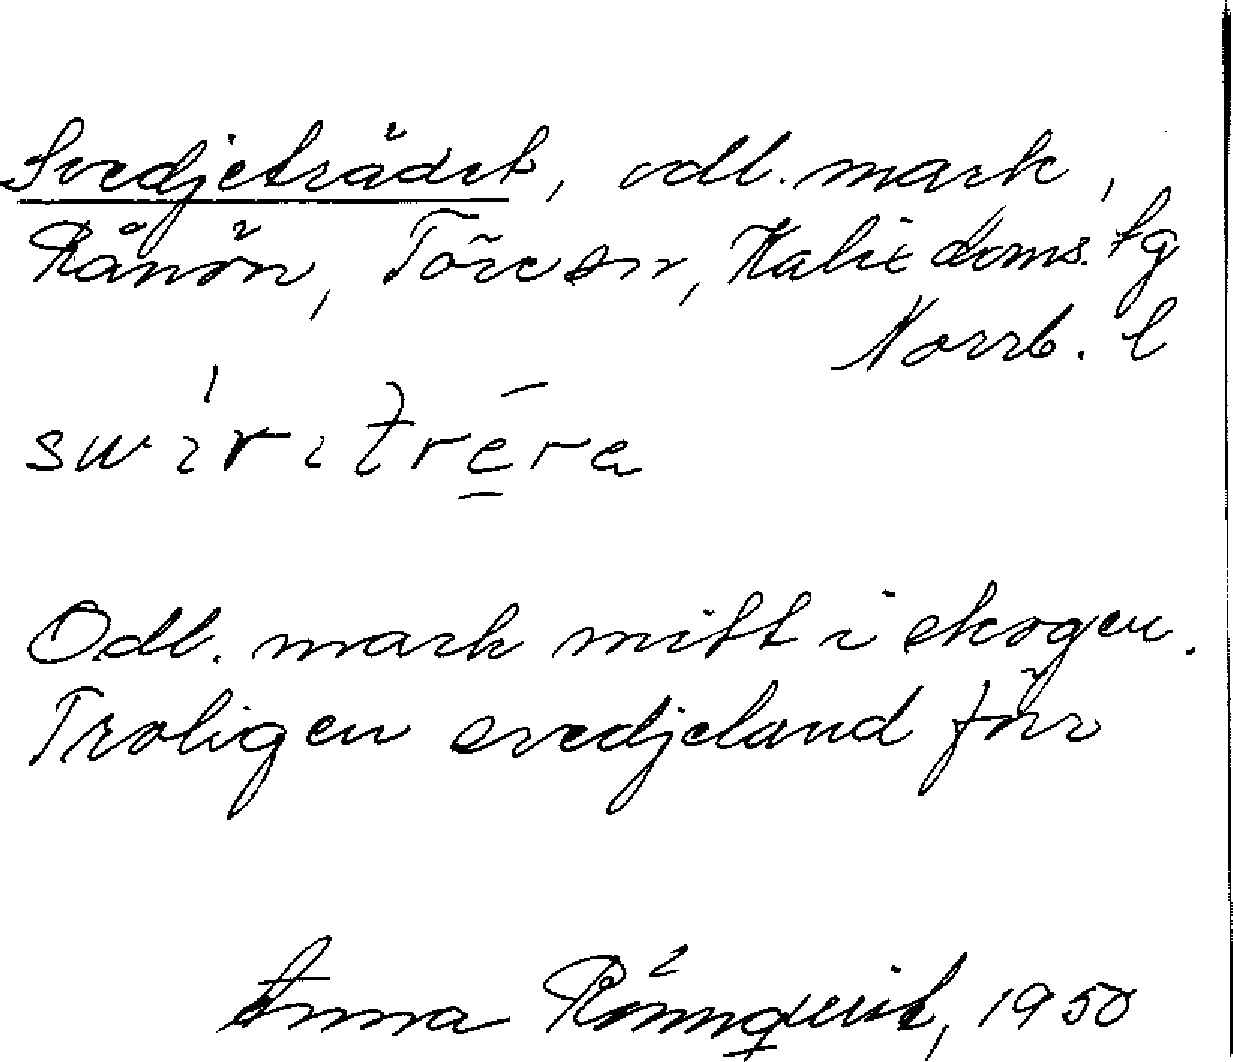 Svedjeträdet, odl. mark,
Rånön, Töre sn, Kalix doms. tg
Norrb. l
Odl. mark mitt i skogen.
Troligen svedjeland förr
Anna Rönnqvist, 1950